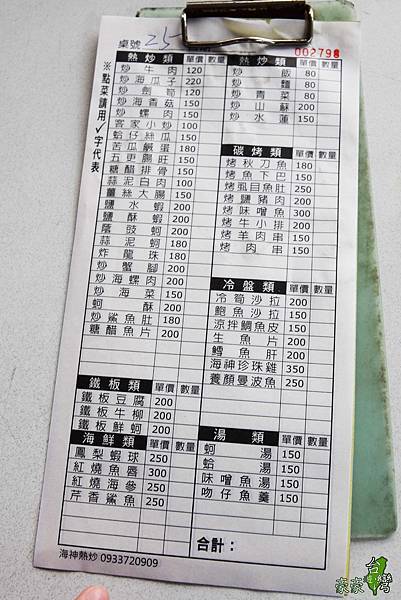 桌號 25
002798
※點菜請用✓字代表
熱炒類 單價 數量
炒牛肉 120
炒海瓜子 220
炒劍筍 120
炒海香菇 150
炒螺肉 150
客家小炒 100
蛤仔絲瓜 150
苦瓜鹹蛋 180
五更腸旺 150
糖醋排骨 150
蒜泥白肉 100
薑絲大腸 150
鹽水蝦 200
鹽酥蝦 200
蔭豉蚵 200
蒜泥蚵 180
炸龍珠 180
炒蟹腳 200
炒海螺肉 200
炒海菜 150
蚵酥 200
炒鯊魚肚 180
糖醋魚片 200
鐵板類 單價 數量
鐵板豆腐 200
鐵板牛柳 200
鐵板鮮蚵 200
海鮮類 單價 數量
鳳梨蝦球 250
紅燒魚唇 300
紅燒海參 250
芹香鯊魚 250
熱炒類 單價 數量
炒飯 80
炒麵 80
炒青菜 80
炒山蘇 200
炒水蓮 150
碳烤類 單價 數量
烤秋刀魚 180
烤魚下巴 150
烤虱目魚肚 250
烤鹽豬肉 200
烤味噌魚 300
烤牛小排 200
烤羊肉串 150
烤肉串 150
冷盤類 單價 數量
冷筍沙拉 200
鮑魚沙拉 150
涼拌鯛魚皮 150
生魚片 200
鱈魚肝 200
海神珍珠雞 350
養顏曼波魚 250
湯類 單價 數量
蚵湯 150
蛤湯 150
味噌魚湯 150
吻仔魚羹 150
合計：
海神熱炒 0933720909
台灣
豪豪